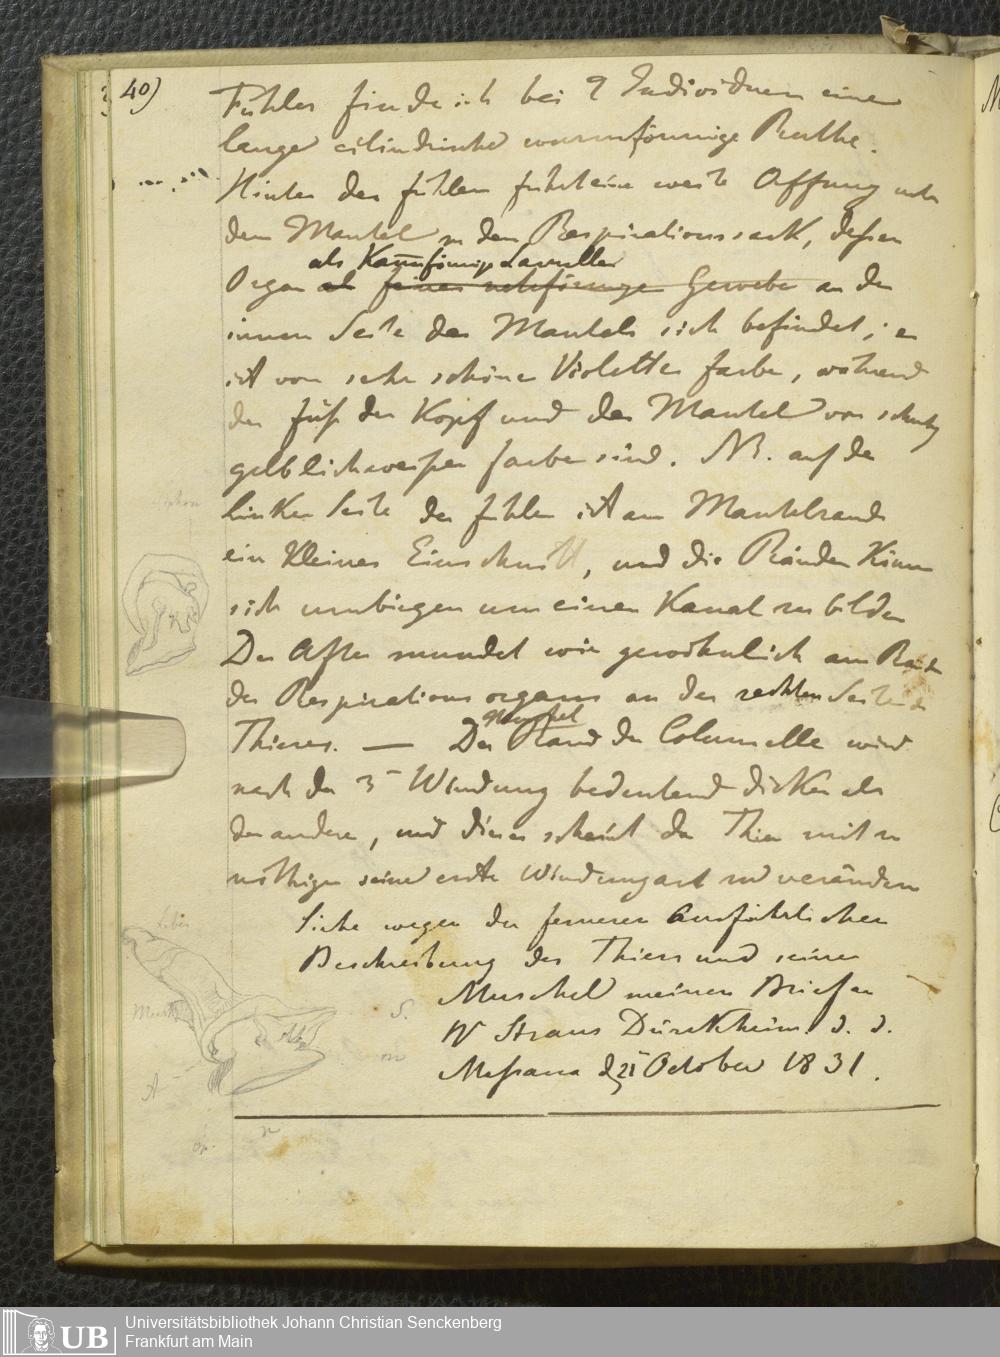 40)
Fühler finde ich bei 9 Individuen eine
lange cilindrische wurmförmige Ruthe.
Hinter den fühlern führt eine weite Öffnung unter
dem Mantel zu dem Respirationssack, deßen
als Kam̅förmige Lamellen
Organ als feines netzförmiges Gewebe an der
innern Seite des Mantels sich befindet; er
ist von sehr schöner Violetter farbe, während
der fuß der Kopf und der Mantel von schmutzig
gelblichweißer farbe sind. NB. auf der
linken Seite der fühler ist am Mantelrande
ein kleiner Einschnitt, und die Ränder
sich umbiegen um einen Kanal zu bilden
Der After mundet wie gewöhnlich am Rande
des Respirations organs an der rechten Seite des
Thieres. — Der Rand der Columelle wird
nach der 3 Windung bedeutend dicker als
der andere, und dieses scheint das Thier mit zu
nöthigen seine erste Windungart zu verändern
Siehe wegen der ferneren Ausführlichen
Beschreibung des Thiers und seiner
Muschel meinen Brief an
Hr Straus Dürckheim. d. d.
Meßana d 21 October 1831.
Leber
Mantel
S.
A
Universitätsbibliothek Johann Christian Senckenberg
Frankfurt am Main
UB